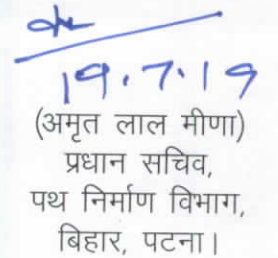 19.7.19
(अमृत लाल मीणा)
प्रधान सचिव,
पथ निर्माण विभाग,
बिहार, पटना।